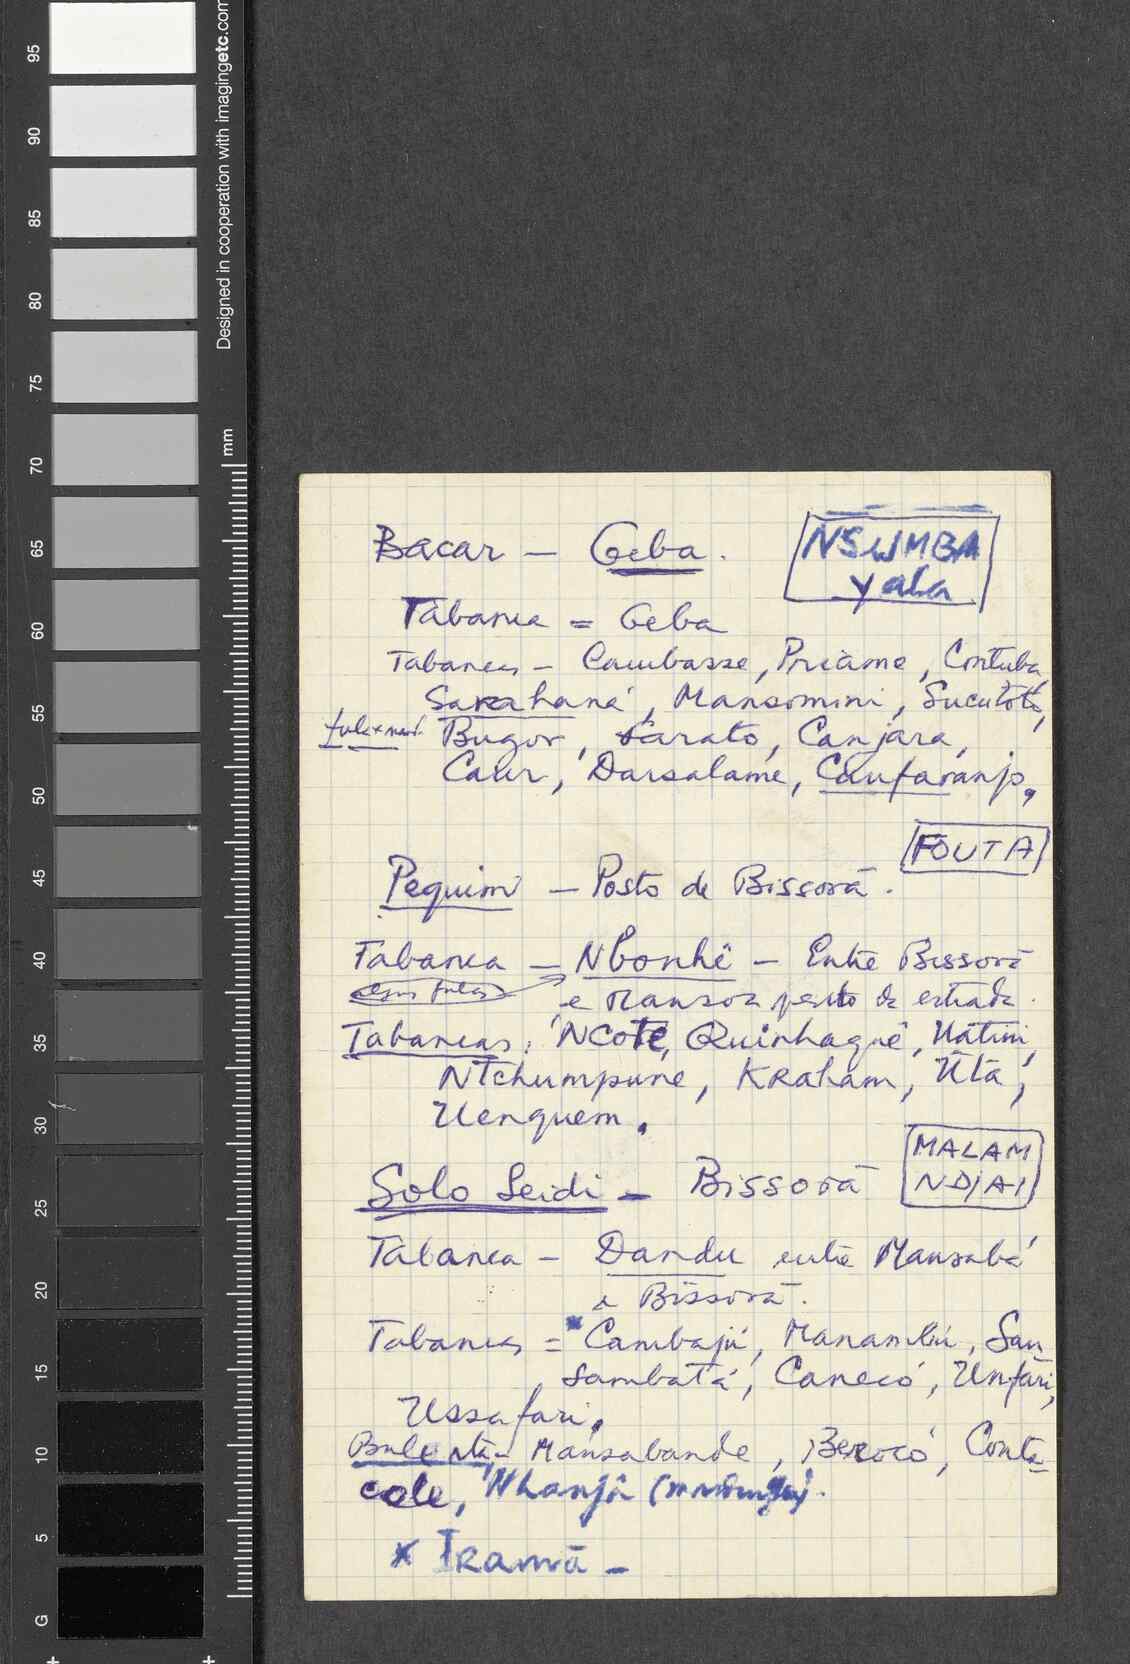 95
90
85
80
75
70
65
60
55
50
45
40
35
30
25
20
15
10
5
G
Designed in cooperation with imagingetc.com
mm
Bacar — Geba.
NSUMBA
Yaba
Tabanca = Geba
Tabancas — Cambasse, Priame, Contuba,
Sarahané, Mansomini, Sucutótó,
Bugor, Sarato, Canjara,
Caur, Darsalame, Caufaranjo,
FOUTA
Pequim — Posto de Bissorã.
Tabanca — Nbonhê — Entre Bissorã
alguns fulas
e Mansoa perto da estrada.
Tabancas: NCOTE, Quinhaquê,
Ntchumpune, Kraham, Utá,
Uenquem.
MALAM
NDJAI
Solo Seidi — Bissorã
Tabanca — Dandu entre Mansabá
e Bissorã.
Tabancas = * Cambajú, San
sambatá, Canecó, Unfari,
Ussafari.
Mansabande, Berocó, Conta-
cole, Nhanjó
* Iramã —